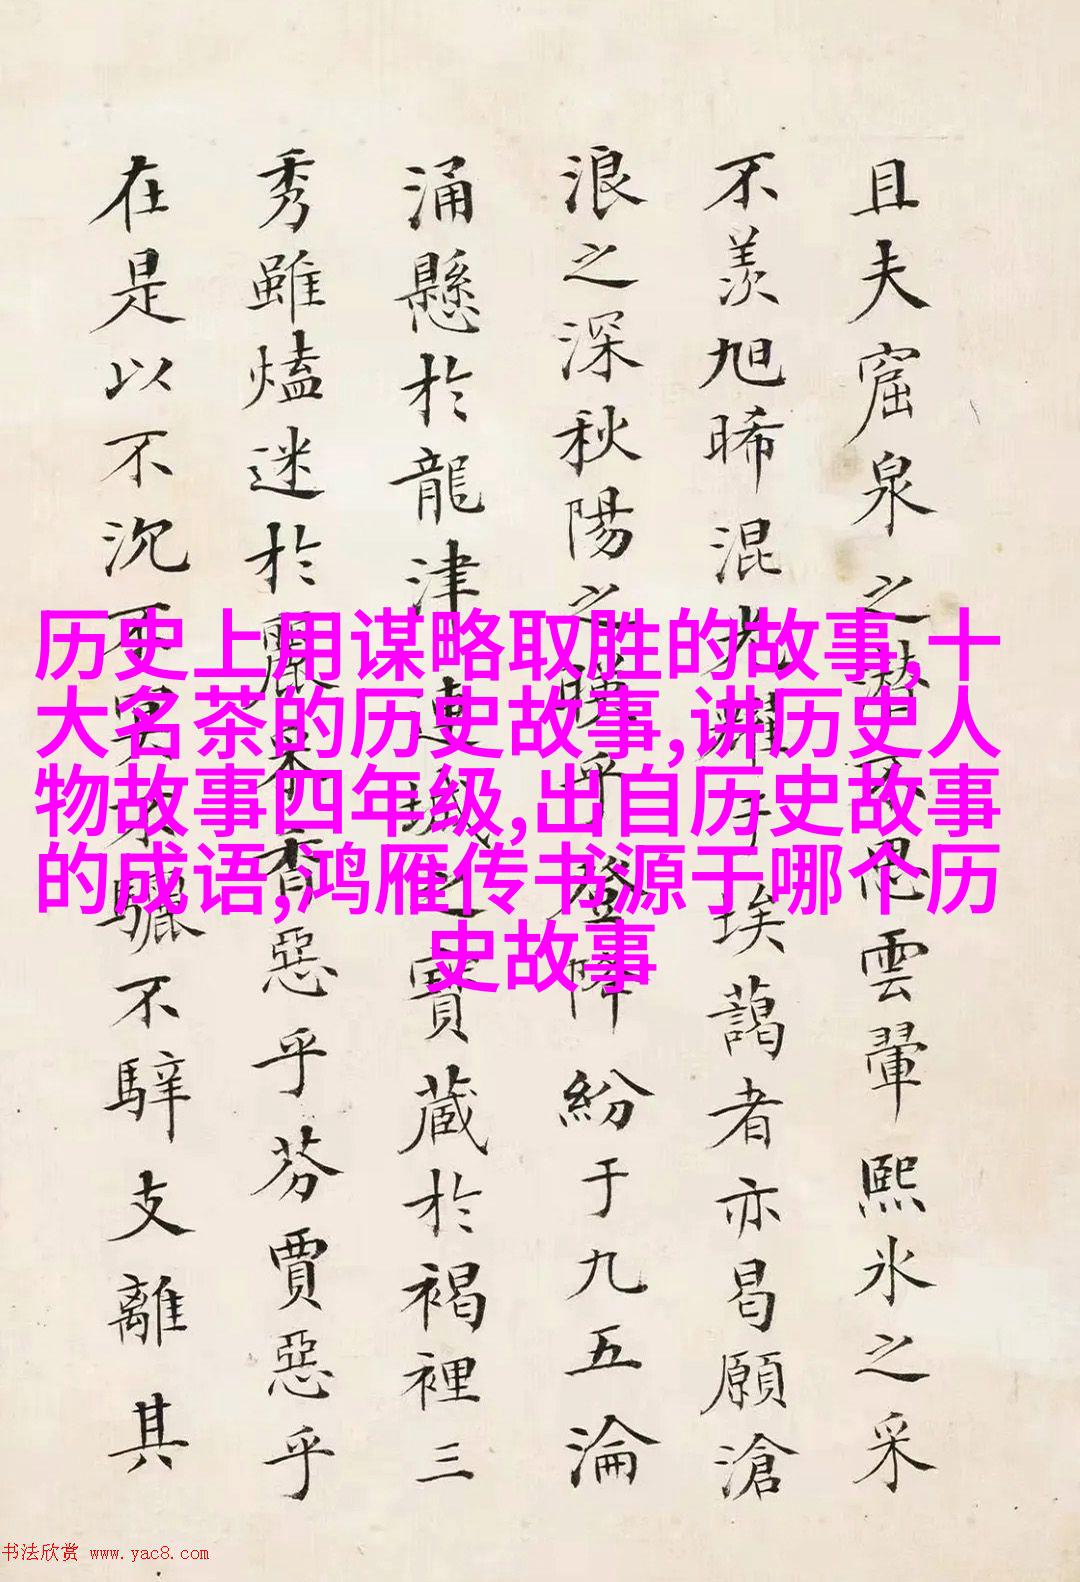 且夫窟泉之潛不思雲翬熙氷之采
不羨旭晞混光耀于埃藹者亦曷願滄
浪之深秋陽之暎乎登降紛于九五淪
涌懸於龍津連城之寶藏於褐裡三
秀雖熆迷於麗采香惡乎芬賈惡乎
在是以不沉不冥不驪不騂支離其
历史上用谋略取胜的故事,十
大名茶的历史故事,讲历史人
物故事四年级,出自历史故事
的成语,鸿雁传书源于哪个历
史故事
书法欣赏 www.yac8.com